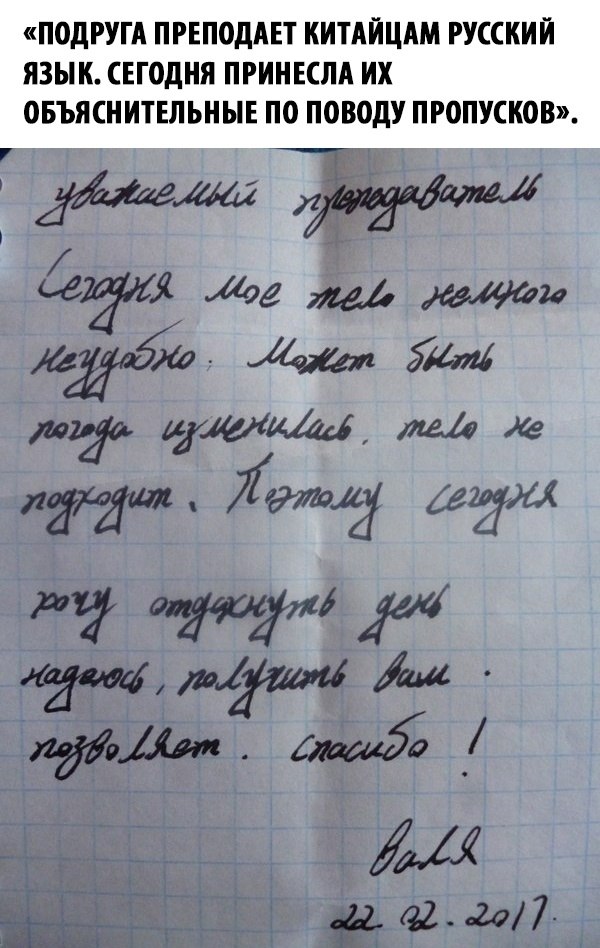 «ПОДРУГА ПРЕПОДАЕТ КИТАЙЦАМ РУССКИЙ
ЯЗЫК. СЕГОДНЯ ПРИНЕСЛА ИХ
ОБЪЯСНИТЕЛЬНЫЕ ПО ПОВОДУ ПРОПУСКОВ».
уважаемый преподаватель
Сегодня мое тело немного
неудобно. Может быть
погода изменилась, тело не
подходит. Поэтому сегодня
хочу отдохнуть день
надеюсь, получить вам.
позволяет. спасибо!
Валя
22.02.2017.